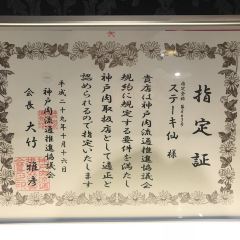 指定証
ステーキ仙 様
貴店は神戸肉流通推進協議会
規約に規定する要件を満たし
神戸肉取扱店として適正と
認められるので指定いたします
平成二十九年十月十六日
神戸肉流通推進協議会
会長 大竹 雅彦